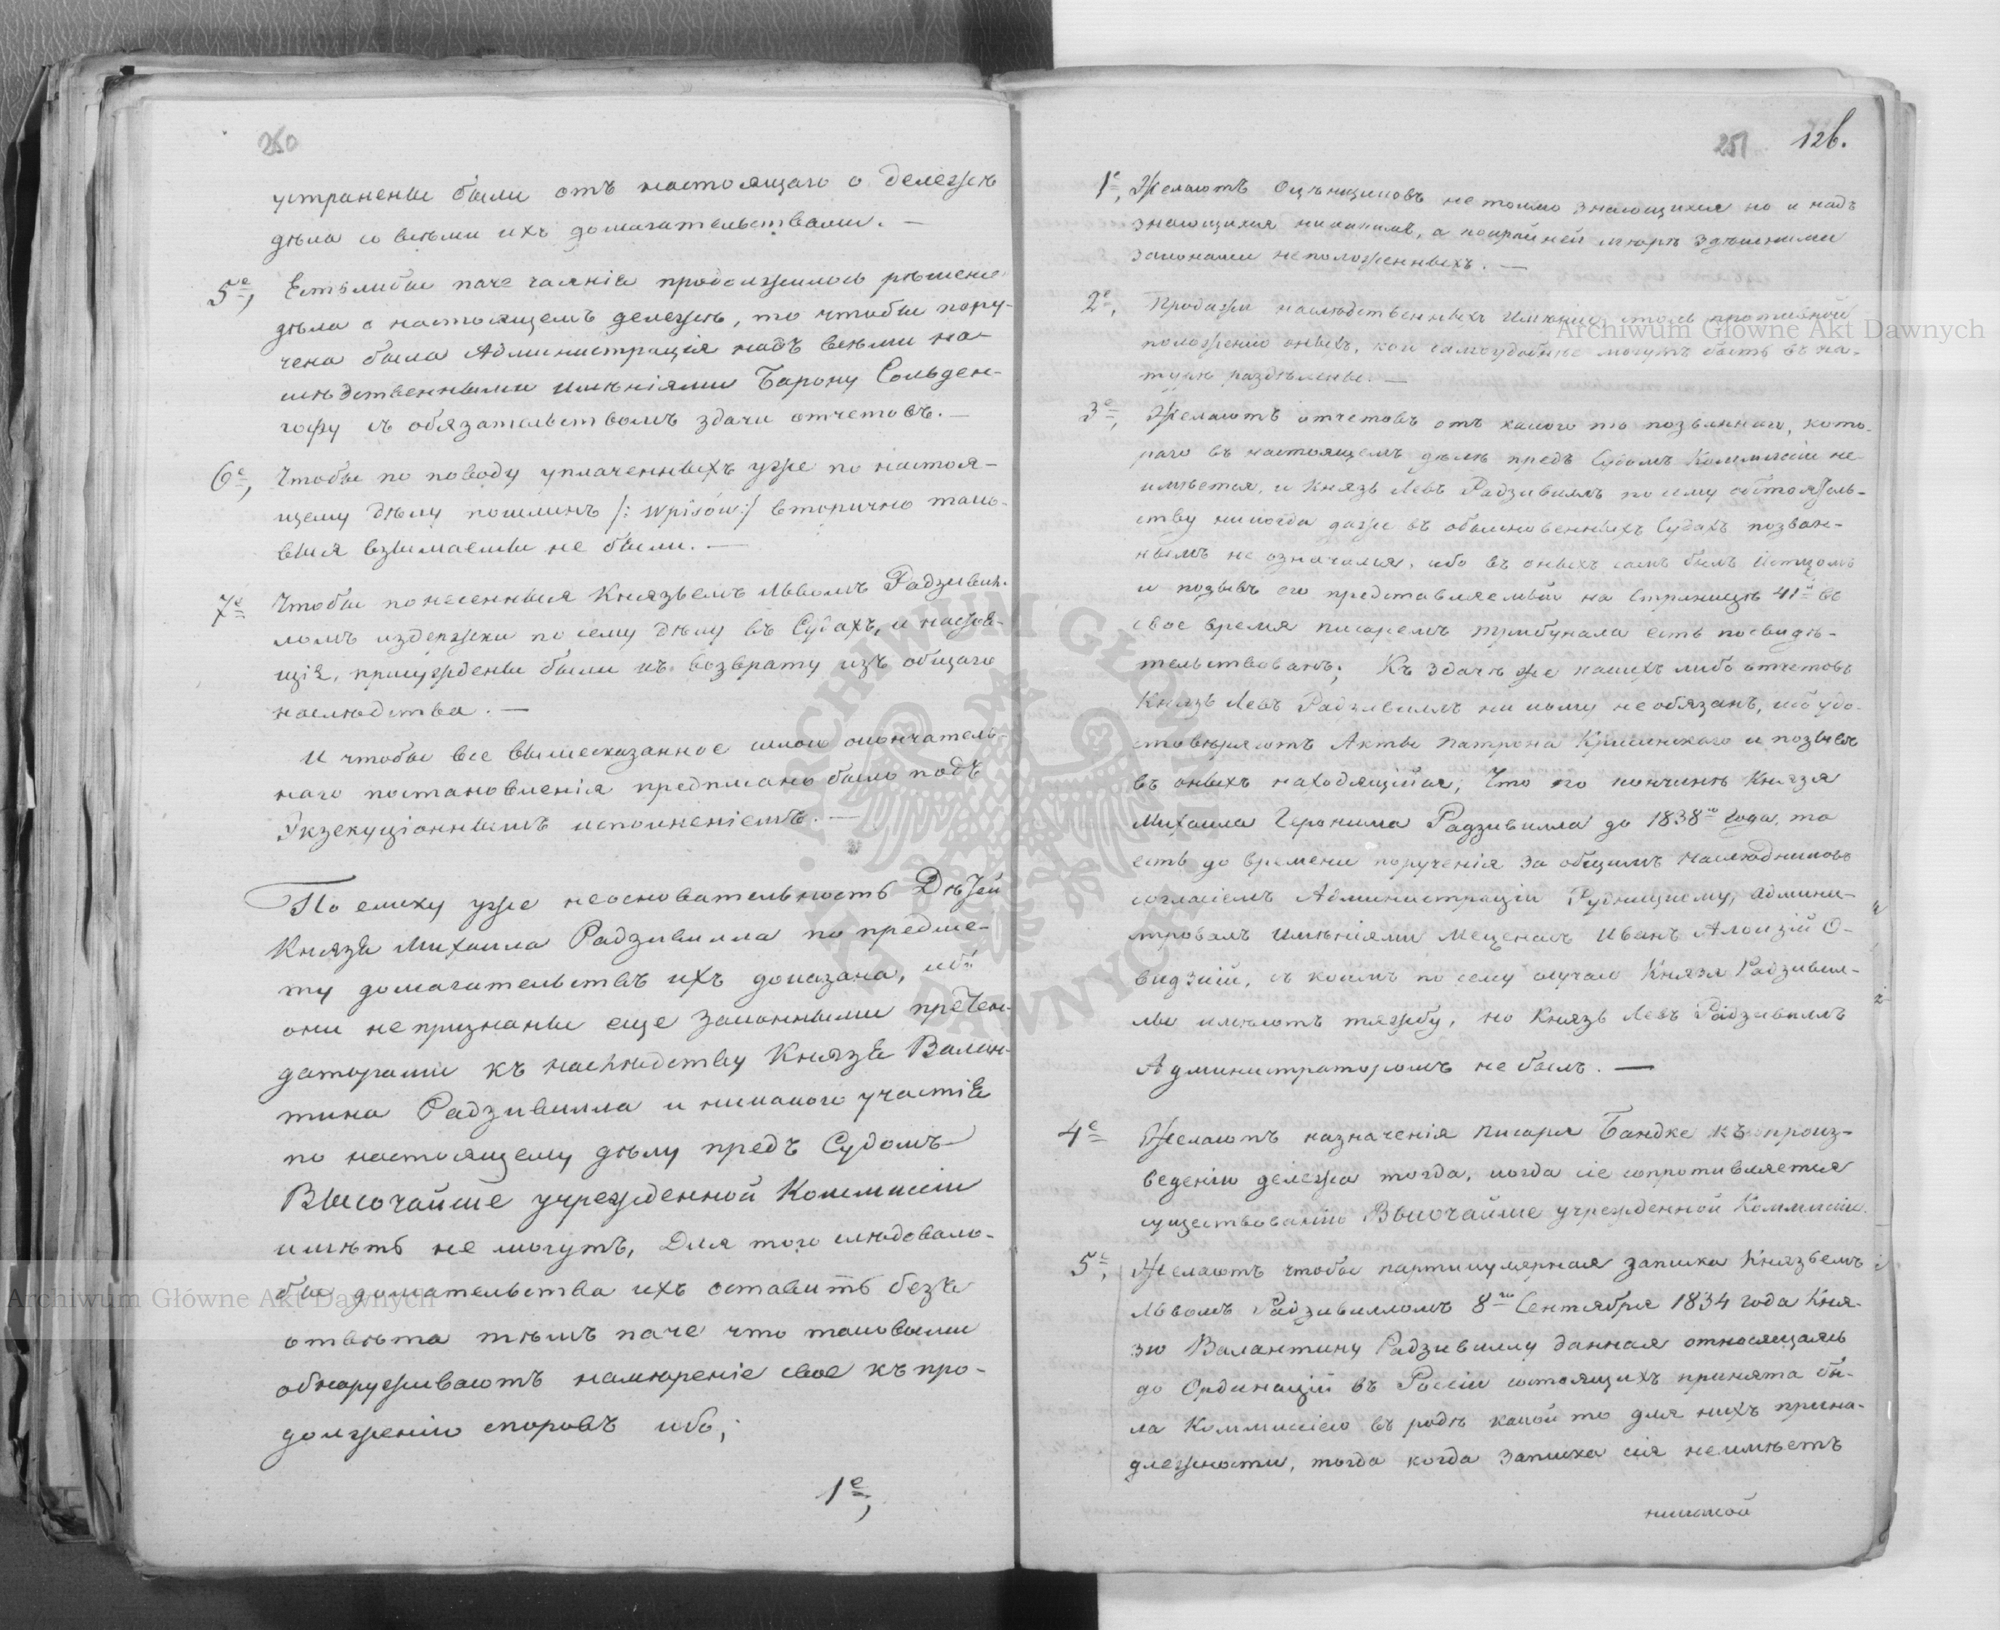 250
устранены были отъ настоящаго о дележѣ
дѣла со всѣми ихъ домагательствами. —
5е, Естьлибы паче чаянія продолжилось рѣшеніе
дѣла о настоящемъ дележѣ, то чтобы пору-
чена была Администрація надъ всѣми на-
слѣдственными имѣніями Барону Сольден-
гофу съ обязательствомъ здачи отчетовъ. —
6е, Чтобы по поводу уплаченныхъ уже по настоя-
щему дѣлу пошлинъ /: wpisów :/ вторично тако-
выя взимаемы не были. —
7е Чтобы понесенныя Княземъ Львомъ Радзивил-
ломъ издержки по сему дѣлу въ Судахъ, и
ція, присуждены были къ возврату изъ общаго
наслѣдства. —
И чтобы все вышесказанное силою окончатель-
наго постановленія предписано было подъ
Экзекуціоннымъ исполненіемъ. —
По елику уже неосновательность Дѣтей
Князя Михаила Радзивилла по предме-
ту домагательствъ ихъ доказана, ибо
они непризнаны еще законными претен-
даторами къ наслѣдству Князя Вален-
тина Радзивилла и никакого участія
по настоящему дѣлу предъ Судомъ
Высочайше учрежденной Коммисіи
имѣть не могутъ, Для того слѣдовало-
бы домательства ихъ оставить безъ
отвѣта тѣмъ паче что таковыми
обнаруживаютъ намѣреніе свое къ про-
долженію споровъ ибо;
1е,
251 126.
1е, Желаютъ Оцѣнщиковъ нетокмо знающихся но и надъ
знающихся никакимъ, а покрайней мѣрѣ здѣшними
законами неположенныхъ. —
2е, Продажи наслѣдственныхъ Имѣній столь противной
положенію оныхъ, кои самоудобнѣе могутъ быть въ на-
турѣ раздѣлены. —
3е, Желаютъ отчетовъ отъ какого то позваннаго, кото-
раго въ настоящемъ дѣлѣ предъ Судомъ Коммисіи не-
имѣется, и Князь Левъ Радзивиллъ по сему обстоятель-
ству никогда даже въ обыкновенныхъ Судахъ позван-
нымъ не означался, ибо въ оныхъ самъ былъ Истцомъ
и позывъ его представляемый на Страницѣ 41й въ
свое время писаремъ трибунала есть посвидѣ-
тельствованъ; Къ здачѣ же какихъ либо отчетовъ
Князь Левъ Радзивиллъ никому необязанъ, ибо удо-
стовѣряютъ Акты Патрона Крысинскаго и позывъ
въ оныхъ находящійся; Что по кончинѣ Князя
Михаила Геронима Радзивилла до 1838го Года, то
есть до времени порученія за общимъ наслѣдниковъ
согласіемъ Администраціи Рудницкому, админи-
тровалъ Имѣніями Меценасъ Иванъ Алоизій О-
видзкій, съ коимъ по сему случаю Князя Радзивил-
лы имѣютъ тяжбу, но Князь Левъ Радзивиллъ
Администраторомъ не былъ. —
4е Желаютъ назначенія Писаря Бандке къ произ-
веденію дележа тогда, когда сіе сопротивляется
существованію Высочайше учрежденной Коммисіи.
5е, Желаютъ чтобы партикулярная записка Княземъ
Львомъ Радзивилломъ 8го Сентября 1834 года Кня-
зю Валантину Радзивиллу данная относящаясь
до Ординацій въ Россіи состоящихъ принята бы-
ла Коммисіею въ родѣ какой то для нихъ прина-
длежности, тогда когда записка сія неимѣетъ
никакой
Archiwum Główne Akt Dawnych
Archiwum Główne Akt Dawnych
ARCHIWUM GŁÓWNE AKT DAWNYCH